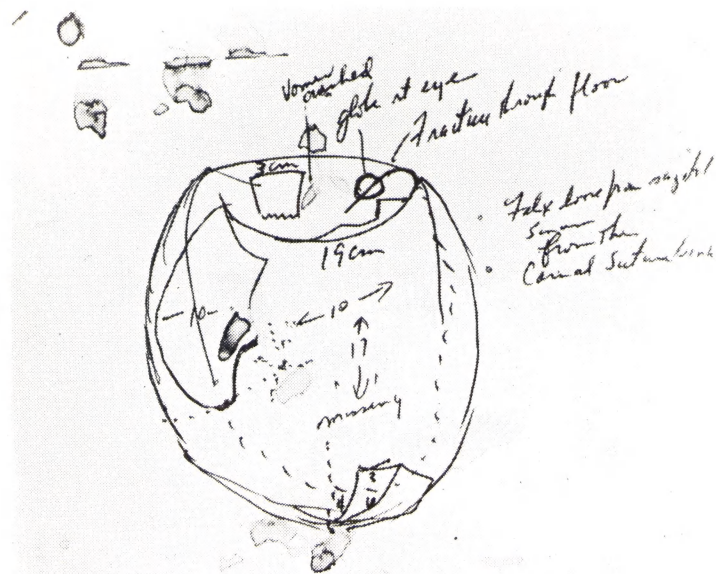 Vomer crushed
globe rt eye
Fracture through floor
3cm
19cm
Falx loose from sagittal
sinus
from the
Coronal suture back
10
10
17
missing